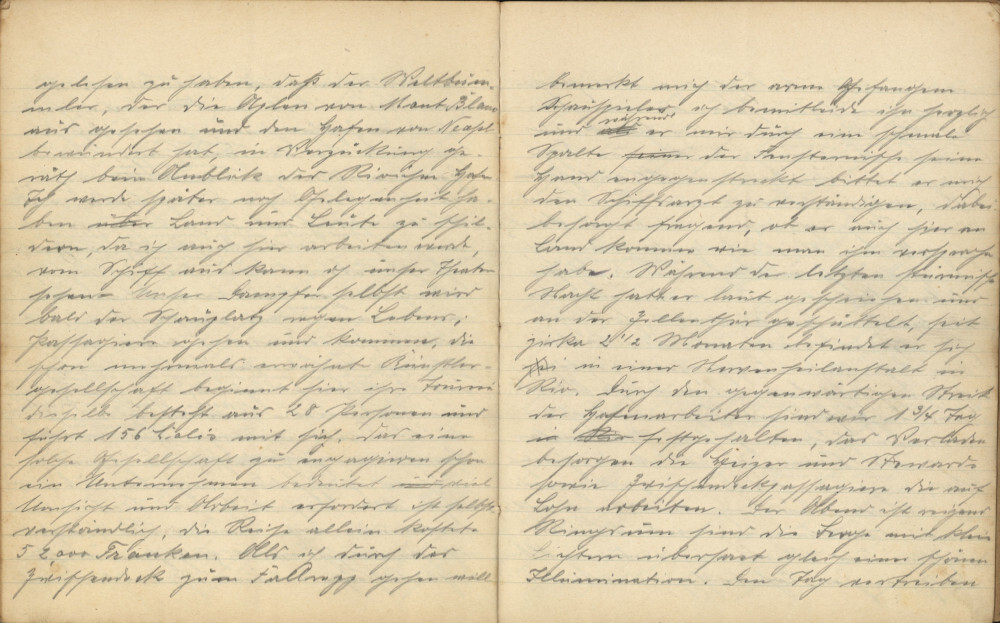 gelesen zu haben, daß der Weltbum-
mler, der die Alpen von Mont Blanc
aus gesehen und den Hafen von Neapel
bewundert hat, in Verzückung ge-
rät beim Anblick der Rioischen Hafen
Ich werde später noch Gelegenheit ha-
ben über Land und Leute zu schil-
dern, da ich auch hier arbeiten werde,
vom Schiff aus kann ich unser Theater
sehen. Unser Dampfer selbst wird
bald der Schauplatz regen Lebens;
Passagiere gehen und kommen, die
schon mehrmals erwähnte Künstler-
gesellschaft beginnt hier ihre Tournee
dieselbe besteht aus 28 Personen und
führt 156 Collis mit sich. Das eine
solche Gesellschaft zu engagieren schon
ein Unternehmen bedeutet und viel
Umsicht und Arbeit erfordert ist selbst-
verständlich, die Reise allein kostete
52000 Franken. Als ich durch das
Zwischendeck zum Fallrepp gehen will
bemerkt mich der arme Gefangene
Schauspieler, ich bemitleide ihn herzlich
und während er mir durch eine schmale
Spalte der Fensternische seine
Hand entgegenstreckt bittet er mich
den Schiffsarzt zu verständigen, dabei
besorgt fragend, ob er auch hier an
Land komme wie man ihm versprochen
habe. Während der letzten stürmischen
Nacht hatte er laut geschrieen und
an der Zellenthür geschüttelt, seit
zirka 2 1/2 Monaten befindet er sich
in einer Nervenheilanstalt in
Rio. Durch den gegenwärtigen Streik
der Hafenarbeiter sind wir 1 3/4 Tag
festgehalten, das Verladen
besorgen die Heizer und Stewards
sowie Zwischendeckpassagiere die auf
Lohn arbeiten. Der Abend ist reizend
Ringsum sind die Berge mit klein
Lichtern übersaet gleich einer schönen
Illumination. Den Tag vertreiben